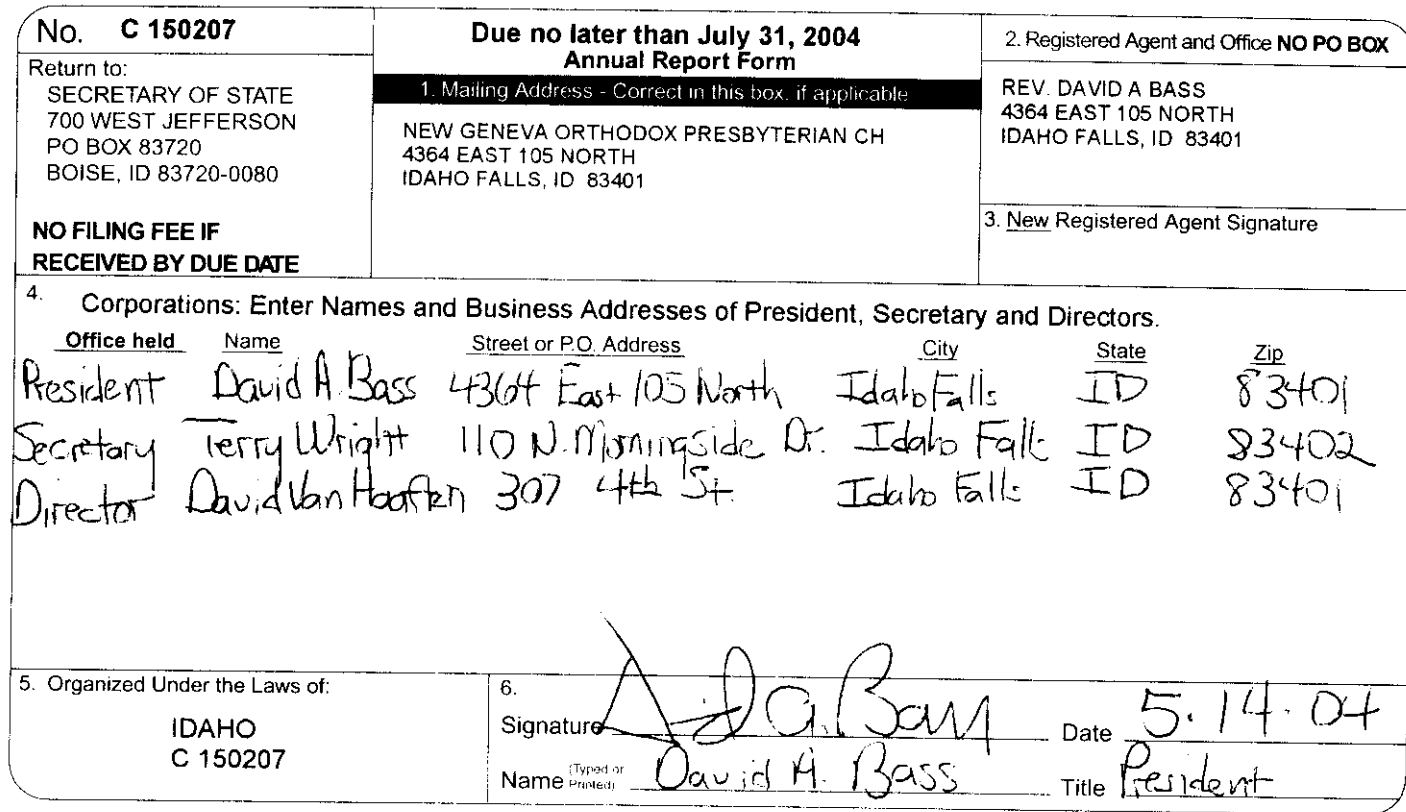 No. C 150207
Return to:
SECRETARY OF STATE
700 WEST JEFFERSON
PO BOX 83720
BOISE, ID 83720-0080
NO FILING FEE IF
RECEIVED BY DUE DATE
Due no later than July 31, 2004
Annual Report Form
1. Mailing Address - Correct in this box, if applicable
NEW GENEVA ORTHODOX PRESBYTERIAN CH
4364 EAST 105 NORTH
IDAHO FALLS, ID 83401
2. Registered Agent and Office NO PO BOX
REV. DAVID A BASS
4364 EAST 105 NORTH
IDAHO FALLS, ID 83401
3. New Registered Agent Signature
4. Corporations: Enter Names and Business Addresses of President, Secretary and Directors.
Office held Name Street or P.O. Address City State Zip
President David A. Bass 4364 East 105 North Idaho Falls ID 83401
Secretary Terry Wright 110 N. Morningside Dr. Idaho Falls ID 83402
Director David Van Hooften 307 4th St. Idaho Falls ID 83401
5. Organized Under the Laws of:
IDAHO
C 150207
6.
Signature David A. Bass Date 5.14.04
Name (Typed or Printed) David A. Bass Title President